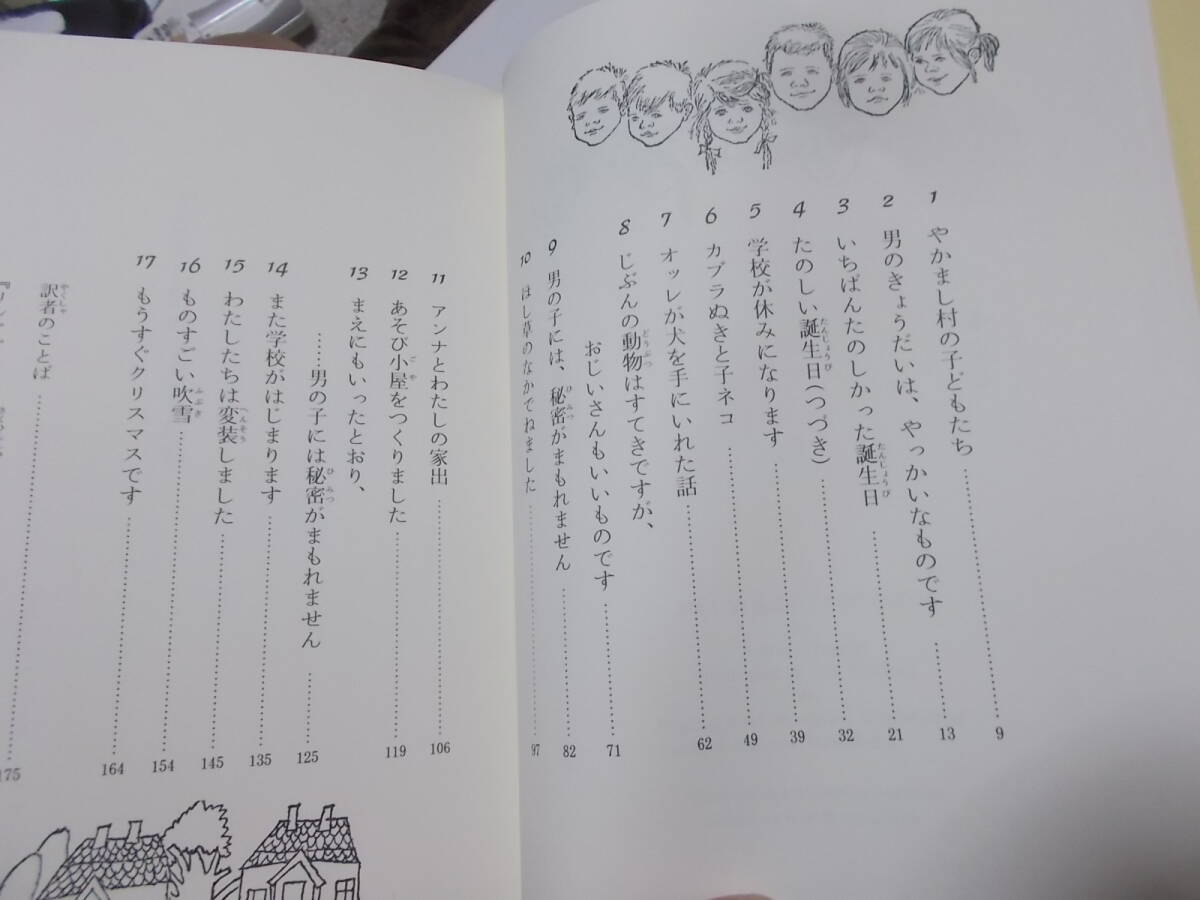 1 やかまし村の子どもたち……………9
2 男のきょうだいは、やっかいなものです……………13
3 いちばんたのしかった誕生日……………21
4 たのしい誕生日(つづき)……………32
5 学校が休みになります……………39
6 カブラぬきと子ネコ……………49
7 オッレが犬を手にいれた話……………62
8 じぶんの動物はすてきですが、
おじいさんもいいものです……………71
9 男の子には、秘密がまもれません……………82
10 ほし草のなかでねました……………97
11 アンナとわたしの家出……………106
12 あそび小屋をつくりました……………119
13 まえにもいったとおり、
……男の子には秘密がまもれません……………125
14 また学校がはじまります……………135
15 わたしたちは変装しました……………145
16 ものすごい吹雪……………154
17 もうすぐクリスマスです……………164
訳者のことば……………175